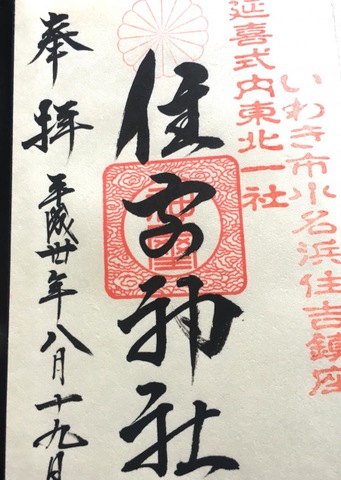 いわき市小名浜住吉鎮座
延喜式内東北一社
住吉神社
奉拝
平成卅年八月十九日